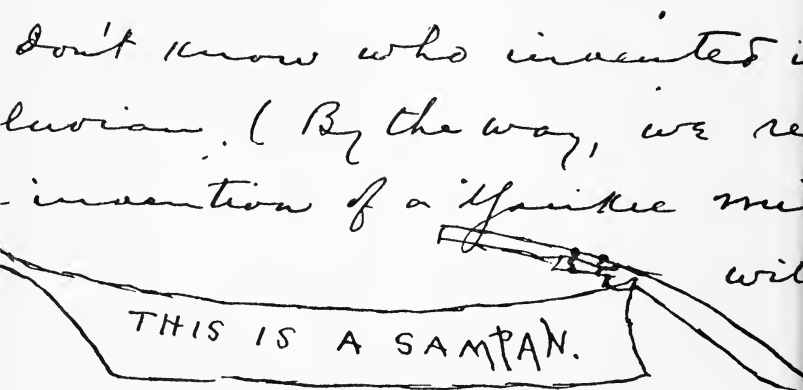 don't know who invented i
luvian. (By the way, we re
- invention of a Yankee mi
wil
THIS IS A SAMPAN.